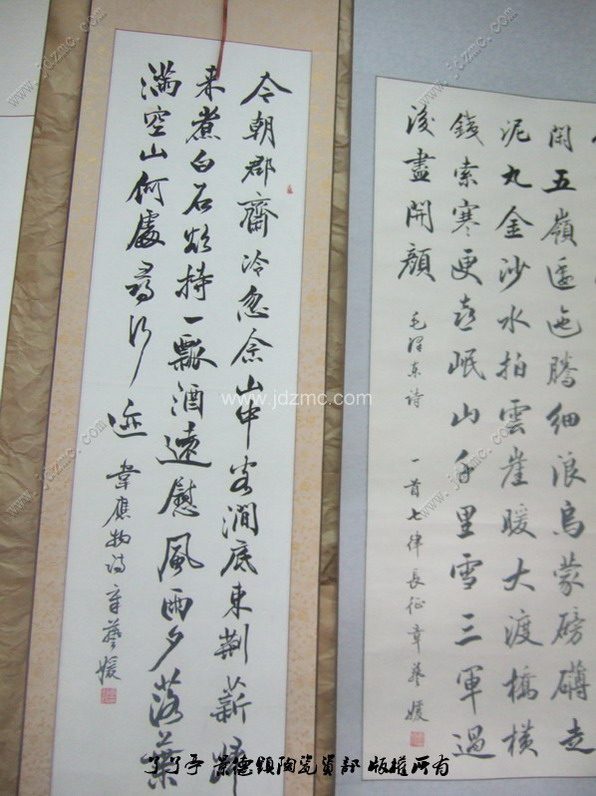 今朝郡齋冷忽念山中客澗底束荆薪歸
來煮白石欲持一瓢酒遠慰風雨夕落葉
滿空山何處尋行迹
韋應物詩章藝媛
閑五嶺逶迤騰細浪烏蒙磅礴走
泥丸金沙水拍雲崖暖大渡橋橫
鐵索寒更喜岷山千里雪三軍過
後盡開顔
毛澤东诗一首七律長征章藝媛
www.jdzmc.com
www.jdzmc.com
www.jdzmc.com
www.jdzmc.com
www.jdzmc.com
景德鎮陶瓷資部 版權所有